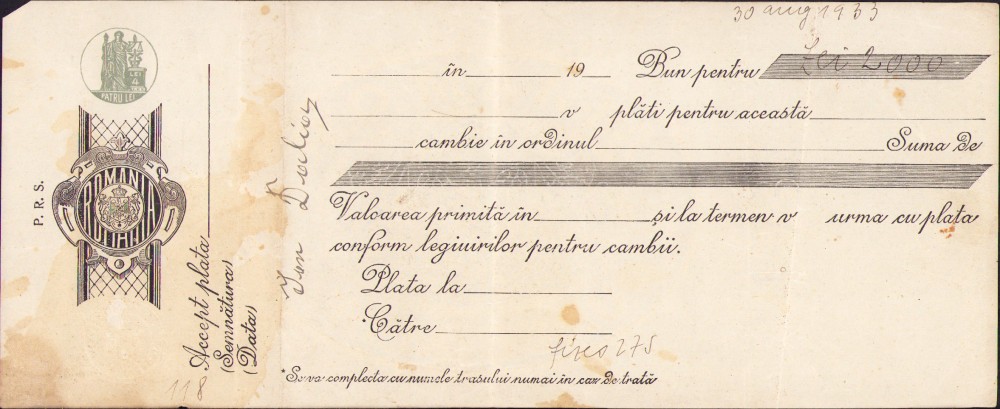 30 aug 1933
în 19 Bun pentru Lei 2000
v plăti pentru această
cambie în ordinul Suma de
Valoarea primită în și la termen v urma cu plata
conform legiuirilor pentru cambii.
Plata la
*Către
fisco 275
*Se va complecta cu numele trasului numai în caz de trată
PATRU LEI
P. R. S.
ROMANIA
Accept plata
(Semnătura)
(Data)
Ion
118